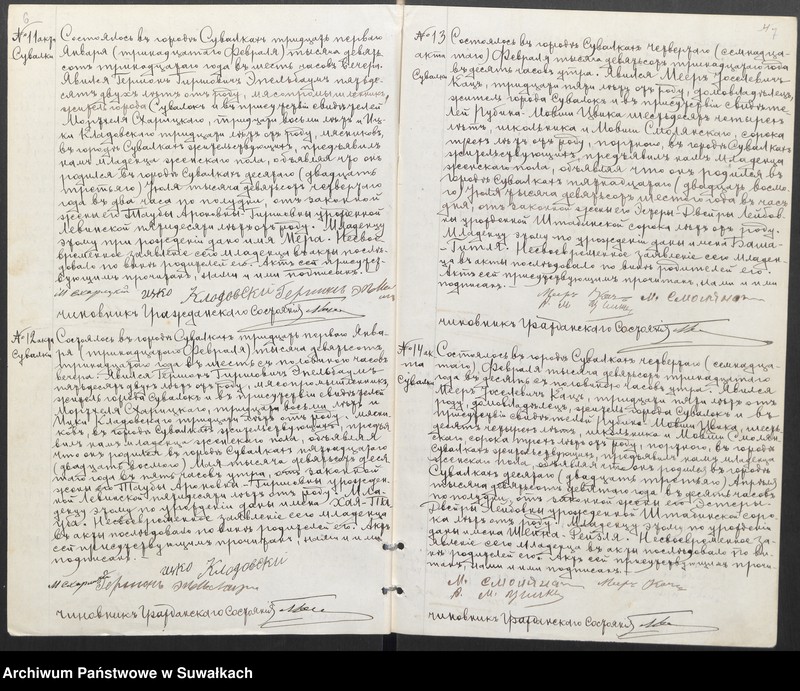 6
№ 11 акта
Сувалки
Состоялось въ городѣ Сувалкахъ тридцать перваго
Января (тринадцатаго Февраля) тысяча девять-
сотъ тринадцатаго года въ шесть часовъ вечера.
Явился Гершонъ Гиршовичъ Эпельбаумъ пятьде-
сятъ двухъ лѣтъ отъ роду, мясопромышленникъ,
житель города Сувалокъ и въ присутствіи свидѣтелей
Мортхеля Скарицкаго, тридцати восьми лѣтъ и Иц-
ки Кладовскаго тридцати лѣтъ отъ роду, мясниковъ,
въ городѣ Сувалкахъ жительствующихъ, предъявилъ
намъ младенца женскаго пола, объявляя что онъ
родился въ городѣ Сувалкахъ десятаго (двадцать
третьяго) Іюля тысяча девятьсотъ четвертаго
года въ два часа по полудни, отъ законной
жены его Таубы Ароновны-Гиршовны урожденной
Левинской пятидесяти лѣтъ отъ роду. Младенцу
этому при рожденіи дано имя Мера. Несвое-
временное заявленіе сего младенца въ акты послѣ-
довало по винѣ родителей его. Актъ сей присутст-
вующимъ прочитанъ, нами и ими подписанъ.
М Скарицкій Ицко Кладовскій Гершонъ
Чиновникъ Гражданскаго Состоянія
№ 12 акта
Сувалки
Состоялось въ городѣ Сувалкахъ тридцать перваго Янва-
ря (тринадцатаго Февраля) тысяча девятьсотъ
тринадцатаго года въ шесть съ половиною часовъ
вечера. Явился Гершонъ Гиршовичъ Эпельбаумъ
пятьдесятъ двухъ лѣтъ отъ роду, мясопромышленникъ,
житель города Сувалокъ и въ присутствіи свидѣтелей
Мортхеля Скарицкаго, тридцати восьми лѣтъ и
Ицки Кладовскаго тридцати лѣтъ отъ роду, мясни-
ковъ, въ городѣ Сувалкахъ жительствующихъ, предъя-
вилъ намъ младенца женскаго пола, объявляя
что онъ родился въ городѣ Сувалкахъ пятнадцатаго
(двадцать восьмого) Мая тысяча девятьсотъ деся-
таго года въ пять часовъ утра, отъ законной
жены его Таубы Ароновны-Гиршовны урожден-
ной Левинской пятидесяти лѣтъ отъ роду. Мла-
денцу этому при урожденіи даны имена Хая-
Несвоевременное заявленіе сего младенца
въ акты послѣдовало по винѣ родителей его. Актъ
сей присутствующимъ прочитанъ, нами и ими
подписанъ.
Ицко Кладовскій
Гершонъ
Чиновникъ Гражданскаго Состоянія
7
№ 13
акта
Сувалки
Состоялось въ городѣ Сувалкахъ четвертаго (семнадца-
таго) Февраля тысяча девятьсотъ тринадцатаго года
въ десять часовъ утра. Явился Мееръ Іоселевичъ
Кацъ, тридцати пяти лѣтъ отъ роду, домовладѣлецъ,
житель города Сувалокъ и въ присутствіи свидѣте-
лей Рубина-Мовши Цвика шестьдесятъ четырехъ
лѣтъ, школьника и Мовши Смолянскаго, сорока
трехъ лѣтъ отъ роду, портного, въ городѣ Сувалкахъ
жительствующихъ, предъявилъ намъ младенца
женскаго пола, объявляя что онъ родился въ
городѣ Сувалкахъ пятнадцатаго (двадцать восьмо-
го) Іюля тысяча девятьсотъ шестого года въ часъ
дня, отъ законной жены его Эстеры-Двейры Лейбов-
ны урожденной Штабинской сорока лѣтъ отъ роду.
Младенцу этому по урожденіи даны имена Баша-
-Гитля. Несвоевременное заявленіе сего младен-
ца въ акты послѣдовало по винѣ родителей его.
Актъ сей присутствующимъ прочитанъ, нами и ими
подписанъ.
Мееръ Кацъ М. Смолянскій
Р. М. Цвикъ
Чиновникъ Гражданскаго Состоянія
№ 14 ак
та
Сувалки
Состоялось въ городѣ Сувалкахъ четвертаго (семнадца-
таго) Февраля тысяча девятьсотъ тринадцатаго
года въ десять съ половиною часовъ утра. Явился
Мееръ Іоселевичъ Кацъ, тридцати пяти лѣтъ отъ
роду, домовладѣлецъ, житель города Сувалокъ и въ
присутствіи свидѣтелей Рубина-Мовши Цвика, шесть-
десятъ четырехъ лѣтъ, школьника и Мовши Смолян-
скаго, сорока трехъ лѣтъ отъ роду, портного, въ городѣ
Сувалкахъ жительствующихъ, предъявилъ намъ младенца
женскаго пола, объявляя что онъ родился въ городѣ
Сувалкахъ десятаго (двадцать третьяго) Апрѣля
тысяча девятьсотъ девятаго года въ десять часовъ
по полудни, отъ законной жены его Эстеры-
Двейры Лейбовны урожденной Штабинской соро-
ка лѣтъ отъ роду. Младенцу этому по урожденіи
даны имена Шейна-Рейзля. Несвоевременное за-
явленіе сего младенца въ акты послѣдовало по ви-
нѣ родителей его. Актъ сей присутствующимъ прочи-
танъ, нами и ими подписанъ.
М. Смолянскій Мееръ Кацъ
Р. М. Цвикъ
Чиновникъ Гражданскаго Состоянія
Archiwum Państwowe w Suwałkach